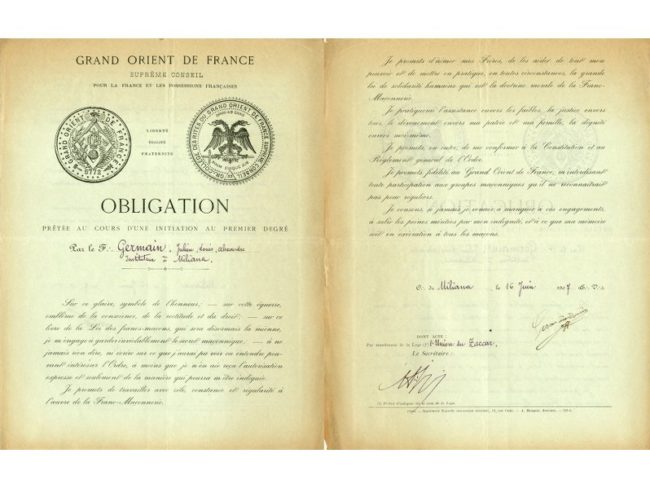 GRAND ORIENT DE FRANCE
SUPRÊME CONSEIL
POUR LA FRANCE ET LES POSSESSIONS FRANÇAISES
GRAND ORIENT DE FRANCE
5772
LIBERTÉ
ÉGALITÉ
FRATERNITÉ
OBLIGATION
PRÊTÉE AU COURS D'UNE INITIATION AU PREMIER DEGRÉ
Par le F∴ Germain, Julien, Louis, Alexandre
Instituteur à Miliana
Sur ce glaive, symbole de l'honneur; — sur cette équerre,
emblème de la conscience, de la rectitude et du droit; — sur ce
livre de la Loi des francs-maçons, qui sera désormais la mienne,
je m'engage à garder inviolablement le secret maçonnique, — à ne
jamais rien dire, ni écrire sur ce que j'aurai pu voir ou entendre pou-
vant intéresser l'Ordre, à moins que je n'en aie reçu l'autorisation
expresse et seulement de la manière qui pourra m'être indiquée.
Je promets de travailler avec zèle, constance et régularité à
l'œuvre de la Franc-Maçonnerie.
Je promets d'aimer mes Frères, de les aider de tout mon
pouvoir et de mettre en pratique, en toutes circonstances, la grande
loi de solidarité humaine qui est la doctrine morale de la Franc-
Maçonnerie.
Je pratiquerai l'assistance envers les faibles, la justice envers
tous, le dévouement envers ma patrie et ma famille, la dignité
envers moi-même.
Je promets, en outre, de me conformer à la Constitution et au
Règlement général de l'Ordre.
Je promets fidélité au Grand Orient de France, m'interdisant
toute participation aux groupes maçonniques qu'il ne reconnaîtrait
pas pour réguliers.
Je consens, si jamais je venais à manquer à ces engagements,
à subir les peines méritées par mon indignité, et à ce que ma mémoire
soit en exécration à tous les maçons.
O∴ de Miliana, le 16 Juin
DONT ACTE :
Par mandement de la Loge (1) l'Union du Zaccar
Le Secrétaire :